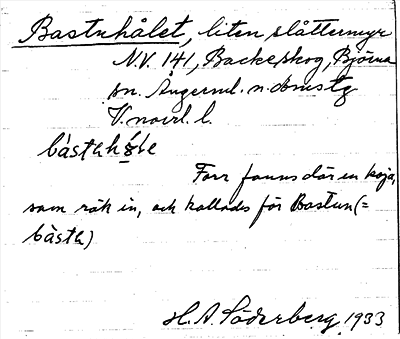 Bastuhålet, liten slåttermyr
N.V. 141, Backe, skog, Björna
sn. Ångerml. n. domstg
V. norrl. l.
bàstuh
Förr fanns där en koja,
som rök in, och kallads för Bastun (=
bàstu)
H. A. Söderberg 1933